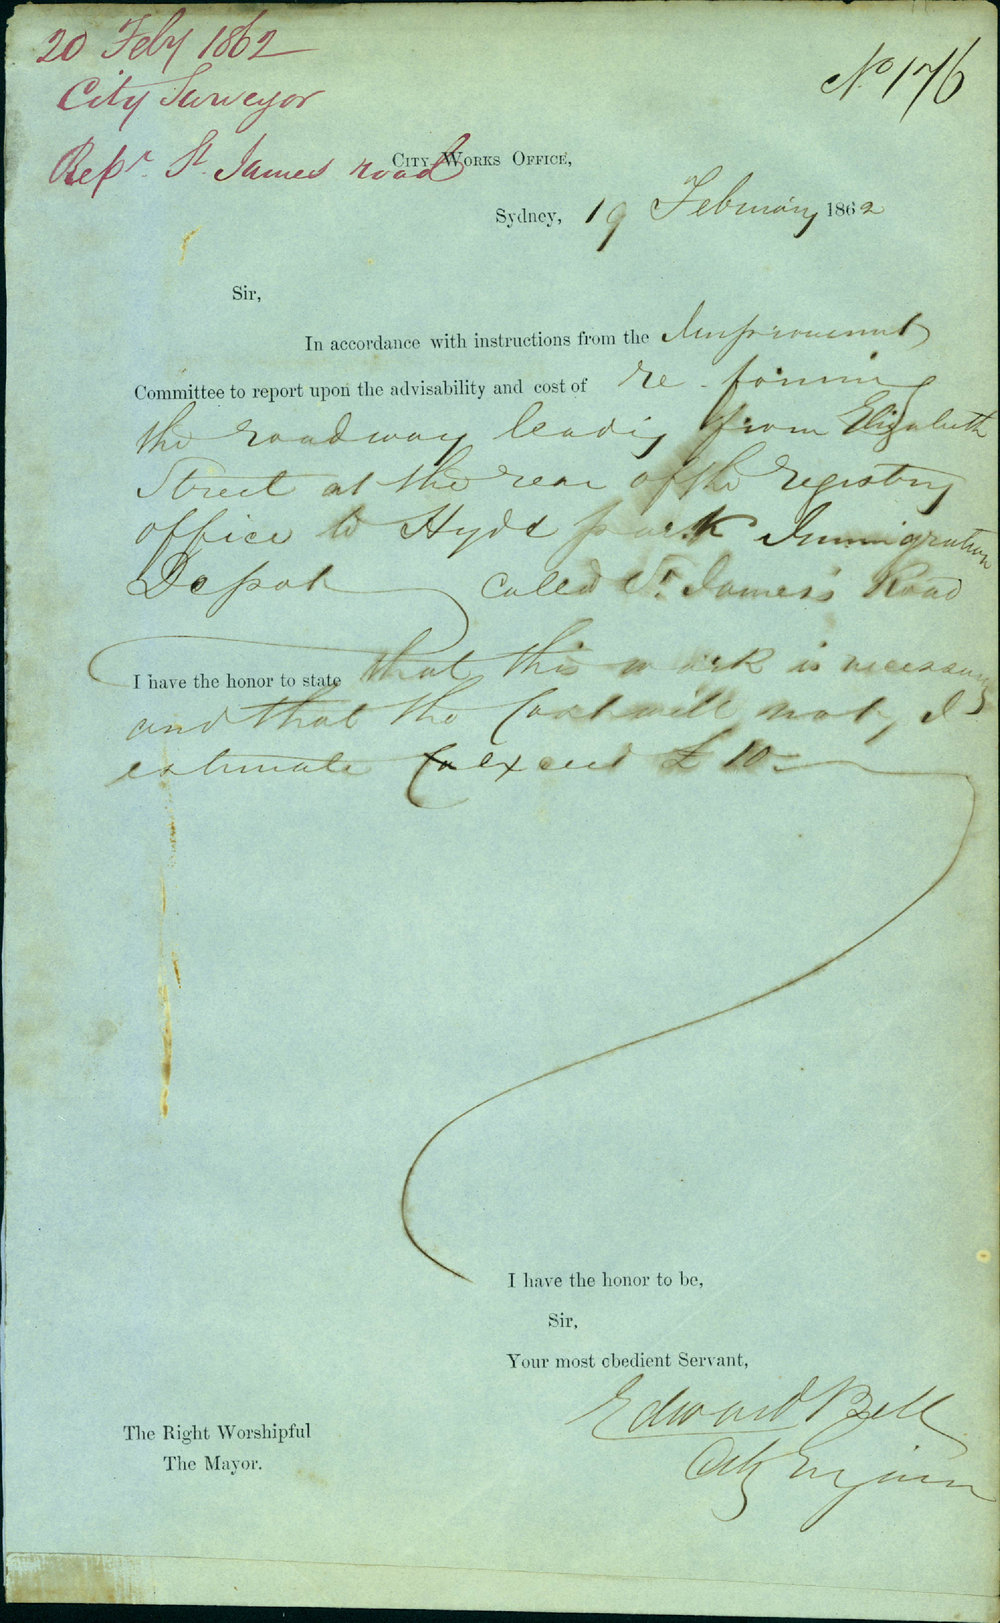 20 Feby 1862
No 176
City Surveyor
Repr. St. James road
City Works Office,
Sydney, 19 February 1862
Sir,
In accordance with instructions from the Improvement
Committee to report upon the advisability and cost of re-forming
the roadway leading from Elizabeth
Street at the rear of the registry
office to Hyde park Immigration
Depot called St. James's Road
I have the honor to state that this work is necessary
and that the Cost will not, I
estimate exceed £10
I have the honor to be,
Sir,
Your most obedient Servant,
Edward Bell
City Engineer
The Right Worshipful
The Mayor.